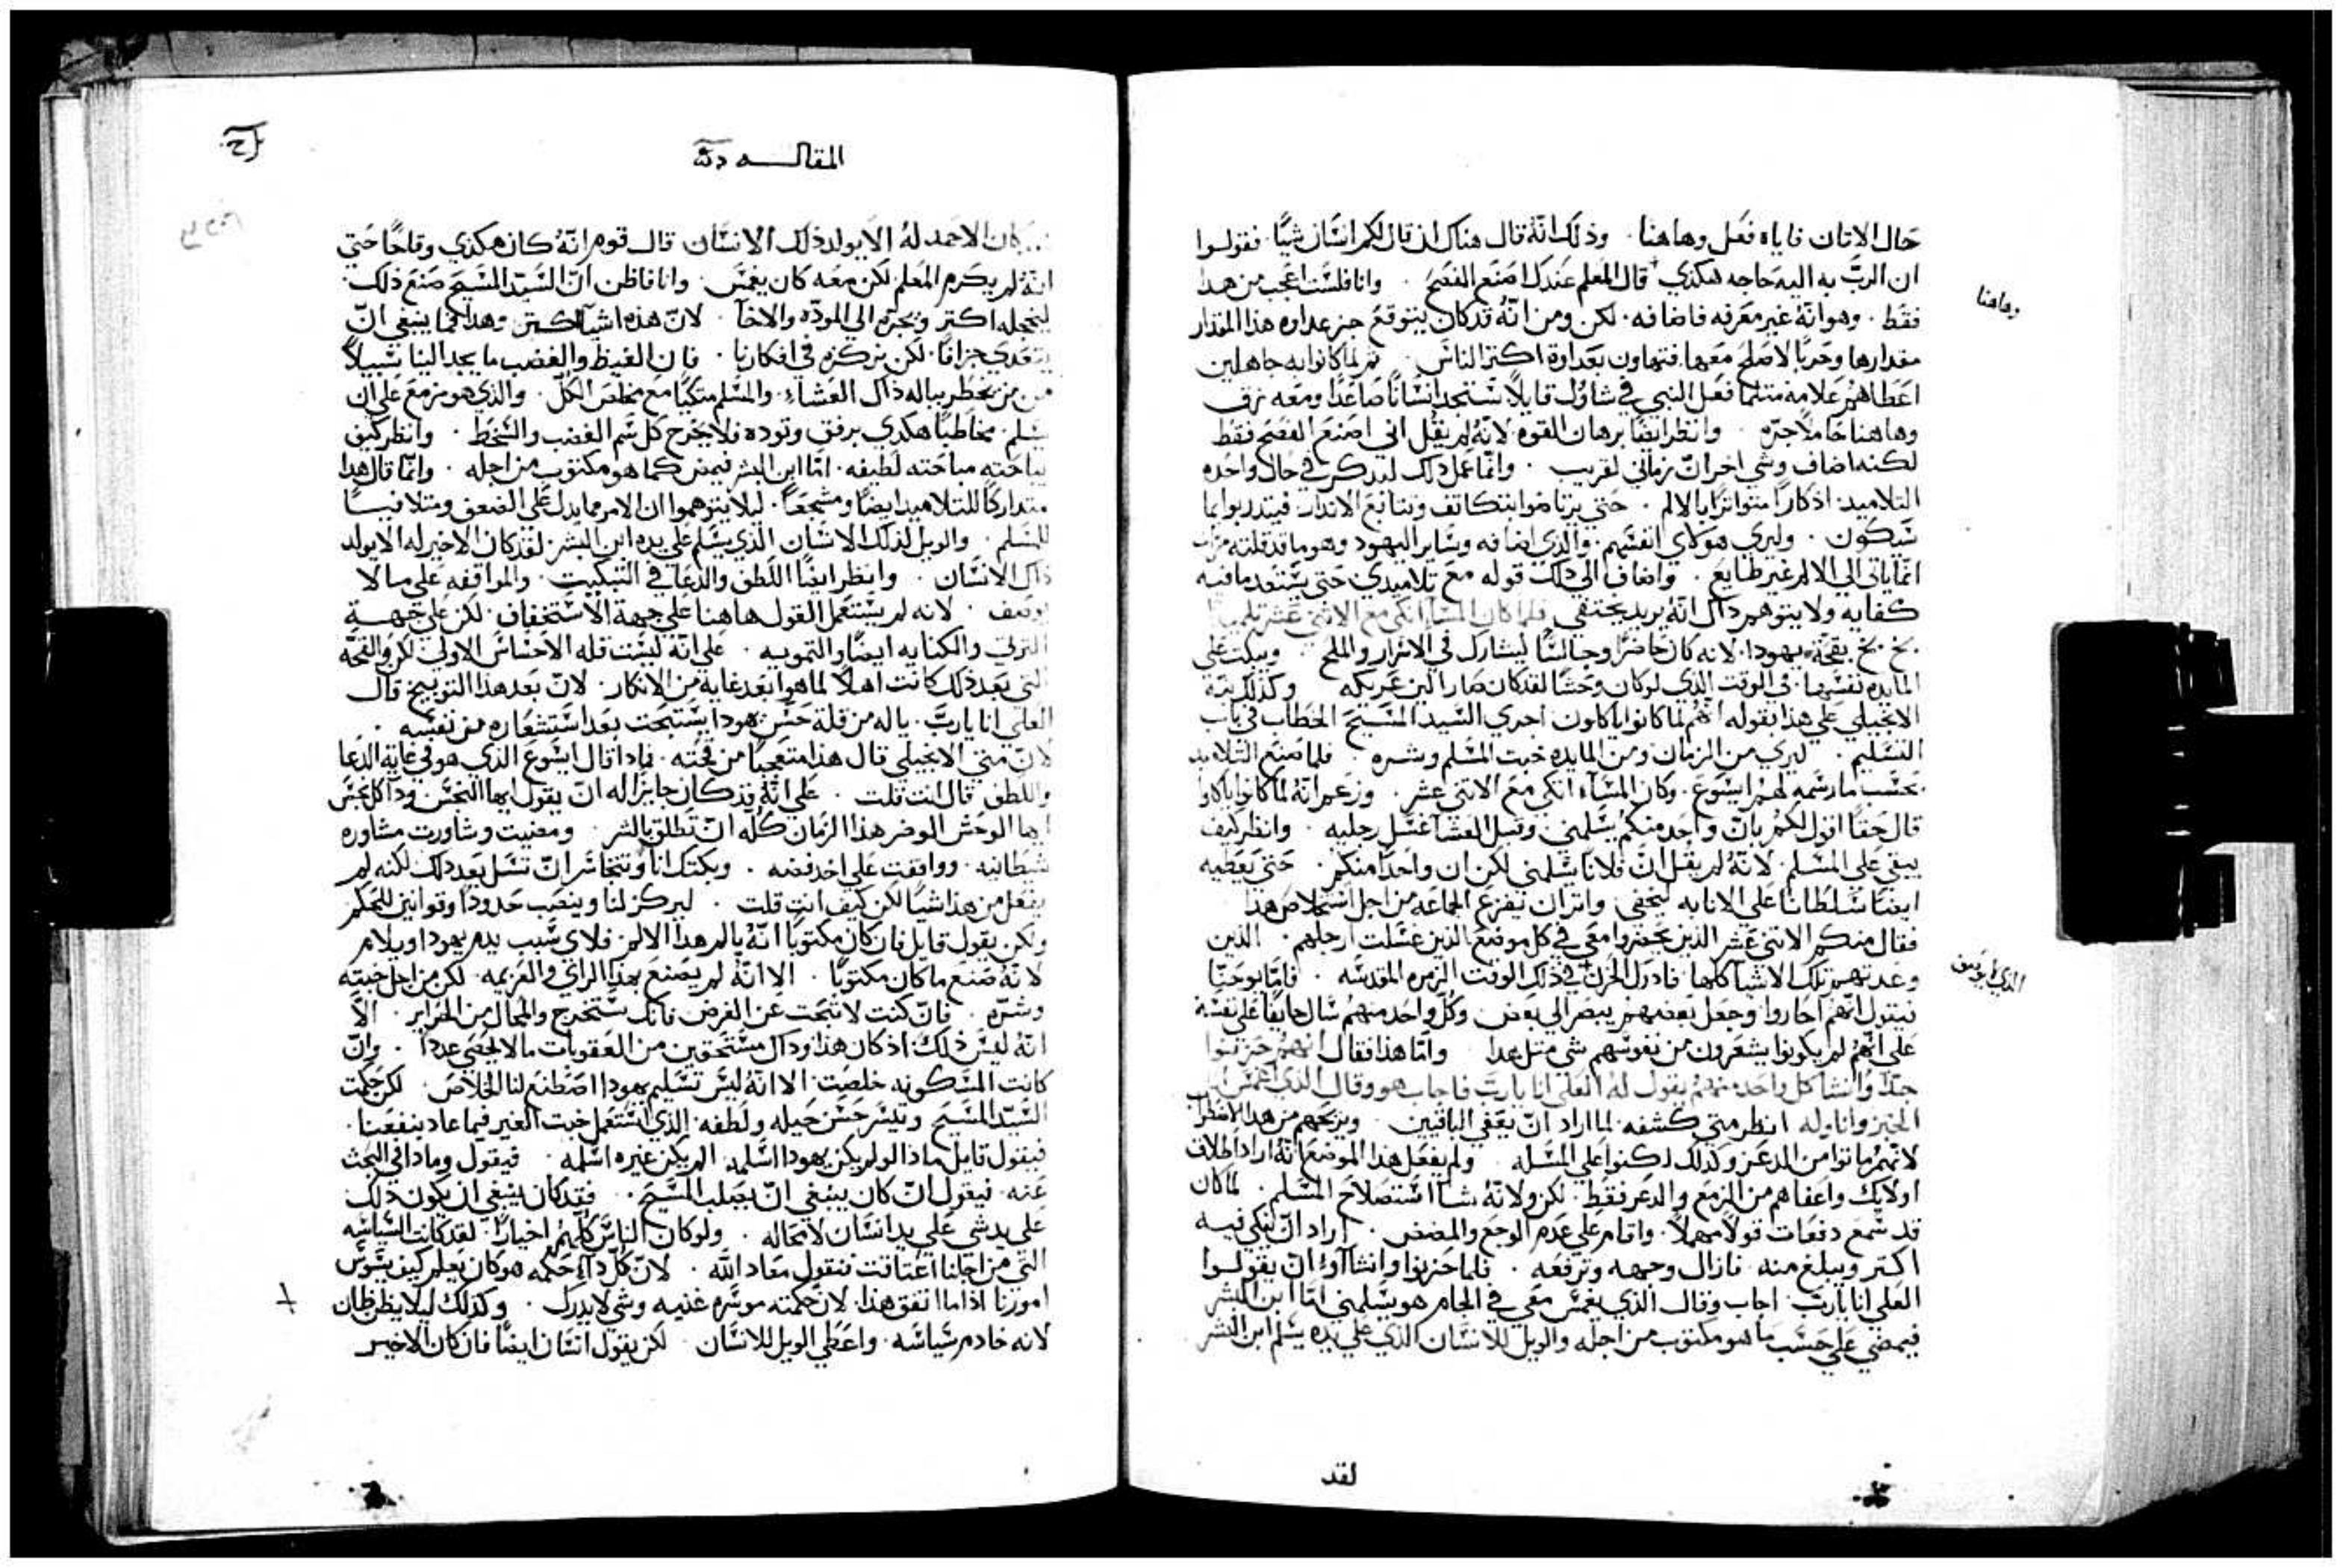 حال الاتان فاياه فعل وهاهنا . وذلك انه قال هناك ان قال لكم انسان شيا . فقولوا
ان الرب به اليه حاجه هكذي قال المعلم عندك اصنع الفصح . وانا فلست اعجب من هدا
فقط . وهو انه غير معرفه فاضافه . لكن ومن انه قد كان يتوقع عداوه هذا المقدار
مقدارها وحربا لا صلح معها فتهاون بعداوة اكتر الناس . تم لما كانوا به جاهلين
اعطاهم علامه متلما فعل النبي في شاول قايلا ستجد انسانا صاعدا ومعه زق
وهاهنا حاملا جره . وانظر ايضا برهان القوه لانه لم يقل اني اصنع الفصح فقط
لكنه اضاف وشي اخر ان زماني لقريب . وانما عمل دلك ليدكر في حال واحده
التلاميد اذكارا متواترا بالالم . حتي يرتاضوا بتكاتف وتتابع الاندار فيتدربوا بما
سيكون . وليري هولاي انفسهم . والدي اضافه وساير اليهود وهو ما قد قلته مرات
انما ياتي الي الالم غير طايع . واضاف الي دلك قوله مع تلاميدي حتي يستعد ما فيه
كفايه ولا يتوهم داك انه يريد يختفي فلما كان المسا اتكي مع الاتني عشر تلميدا
بخ بخ بقحة يهودا . لانه كان حاضرا وجالسا ليشارك في الاسرار والملح . ويبكت علي
المايده نفسها . في الوقت الذي لو كان وحشا لقد كان صار الين عريكه وكذلك
الانجيلي علي هذا بقوله انهم لما كانوا ياكلون اجري السيد المسيح الخطاب في باب
التسليم . ليري من الزمان ومن المايده خبت المسلم وشره . فلما صنع التلاميد
بحسب ما رسمه لهم ايسوع . وكان المساء اتكي مع الاتني عشر . وزعم انه لما كانوا ياكلوا
قال حقا اقول لكم بان واحد منكم يسلمني . وقبل العشا غسل رجليه . وانظر كيف
يبقي علي المسلم . لانه لم يقل ان فلانا يسلمني لكن ان واحدا منكم . حتي يعطيه
ايضا سلطانا علي الانابه ليختفي . واتر ان تفزع الجماعه من اجل استخلاص هذا
فقال منكم الاتني عشر الذين حضروا معي في كل موضع الذين غسلت ارجلهم . الذين
وعدتهم بتلك الاشيا كلها فادرك الحزن في ذلك الوقت الزمره المقدسه . فاما يوحنا
فيقول انهم احاروا وجعل بعضهم يبصر الي بعض وكل واحد منهم سال خايفا علي نفسه
علي انهم لم يكونوا يشعرون من نفوسهم شي متل هدا . واما هذا فقال انهم حزنوا
جدا وانشا كل واحد منهم يقول له العلي انا يارب فاجاب هو وقال الذي اغمس
الخبز واناوله انظر متي كشفه لما اراد ان يعفي الباقيين . ويريحهم من هدا الاضطراب
لانهم ماتوا من الدعر وكذلك ركنوا علي المسله . ولم يفعل هذا الموضع انه اراد اطلاق
اولايك واعفاهم من الزمع والدعر فقط . لكن ولانه شا استصلاح المسلم . لما كان
قد سمع دفعات قولا مهملا . واقام علي عدم الوجع والمضض . اراد ان ينكي فيه
اكتر ويبلغ منه . فازال وجهه وترفعه . فلما حزنوا وانشااوا ان يقولوا
العلي انا يارب . اجاب وقال الذي يغمس معي في الجام هو يسلمني اما ابن البشر
فيمضي علي حسب ما هو مكتوب من اجله والويل للانسان الدي علي يده يسلم ابن البشر
لقد
وهاهنا
المقاله
كان الاحمد له الا يولد ذلك الانسان قال قوم انه كان هكذي وقاحا حتي
انه لم يكرم المعلم لكن معه كان يغمس . وانا فاظن ان السيد المسيح صنع ذلك .
ليخجله اكتر ويجره الي الموده والاخا . لان هذه اشيا وهذا فما ينبغي ان
يتعدي جزافا . لكن نركزه في افكارنا . فان الغيظ والغضب ما يجد الينا سبيلا
من يخطر بباله ذاك العشاء . والمسلم متكيا مع مخلص الكل . والذي هو مزمع علي ان
يسلم مخاطبا هكدي برفق وتوده فلا يخرج كل سم الغضب والسخط . وانظر كيف
يباحته مباحته لطيفه . اما ابن البشر فيمضي كما هو مكتوب من اجله . وانما قال هدا
متداركا للتلاميد ايضا ومشجعا . ليلا يتوهموا ان الامر مما يدل علي الضعف ومتلافيا
للمسلم . والويل لذلك الانسان الذي يسلم علي يده ابن البشر . لقد كان الاخير له الا يولد
ذاك الانسان . وانظر ايضا اللطف والدعا في التبكيت . والمواقفه علي ما لا
يوصف . لانه لم يستعمل القول هاهنا علي جهة الاستخفاف . لكن علي جهة
الترتي والكنايه ايضا والتمويه . علي انه ليست قله الاحساس الاولي لكن والقحه
التي بعد ذلك كانت اهلا لما هو ابعد غاية من الانكار . لان بعد هذا التوبيخ قال
العلي انا يارب . ياله من قلة حس يهودا يستبحت بعد استشعاره من نفسه .
لان متي الانجيلي قال هذا متعجبا من قحته . فمادا قال ايسوع الذي هو في غاية الدعا
واللطف قال انت قلت . علي انه قد كان جايزا له ان يقول ايها النجس ودا كل نجس
ايها الوحش الوضر هذا الزمان كله ان تطلق بالشر . ومضيت وشاورت مشاوره
شيطانيه . ووافقت علي اخد فضه . وبكتك انا وتتجاسر ان تسل بعد دلك لكنه لم
يفعل من هذا شيا لكن كيف انت قلت . ليركز لنا وينصب حدودا وقوانين للتحكم
ولكن يقول قايل فان كان مكتوبا انه يالم هدا الالم . فلاي سبب يدم يهودا ويلام
لانه صنع ما كان مكتوبا . الا انه لم يصنع بهدا الراي والعزيمه . لكن من اجل خبته
وشره . فان كنت لا تبحت عن الغرض فانك ستخرج والمحال من الجراير . الا
انه ليس ذلك اذ كان هذا وداك مستحقين من العقوبات ما لا يحصي عددا . وان
كانت المسكونه خلصت . الا انه ليس تسليم يهودا اصطنع لنا الخلاص . لكن حكمت
السيد المسيح وتيسر حسن حيله ولطفه . الذي استعمل خبت الغير فيما عاد ينفعنا .
فيقول قايل مادا لو لم يكن يهودا اسلمه . الم يكن غيره اسلمه . فيقول ومادا في البحث
عنه . فيقول ان كان ينبغي ان يصلب المسيح . فقد كان ينبغي ان يكون ذلك
علي يدي انسان لا محاله . ولو كان الناس كلهم اخيارا . لقد كانت السياسه
التي من اجلنا اعتاقت فنقول معاد الله . لان كل داء حكمه هو كان يعلم كيف يسوس
امورنا اذا ما اتفق هذا . لان حكمته موسره غنيه وشي لا يدرك . وكذلك ليلا يظن ظان
لانه خادم سياسه . واعطي الويل للانسان . لكن يقول انسان ايضا فان كان الاخير